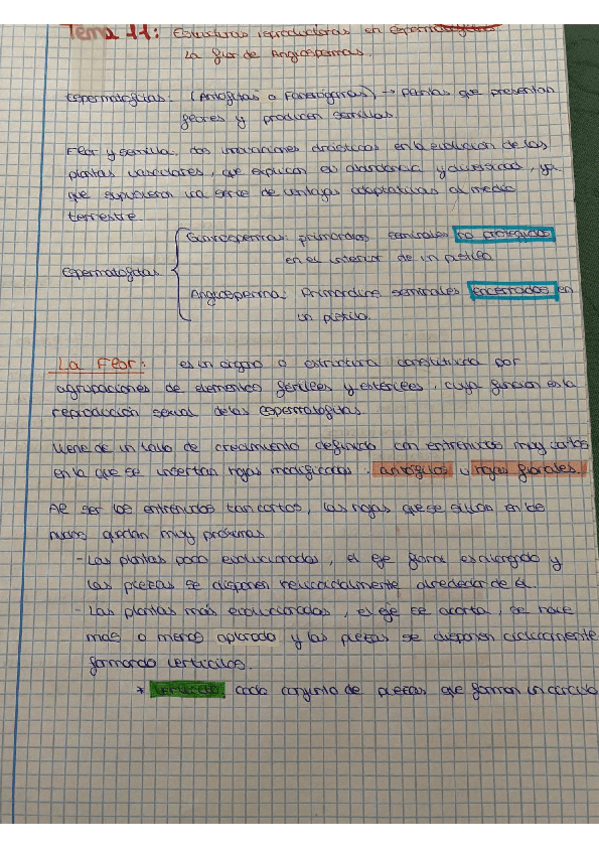 Tema 11: Estructuras reproductoras en Espermatofitas.
La flor de Angiospermas.
Espermatofitas: (Antofitas o Fanerógamas) → plantas que presentan
flores y producen semillas.
Flor y semilla: dos innovaciones drásticas en la evolución de las
plantas vasculares, que explican su abundancia y diversidad, ya
que supusieron una serie de ventajas adaptativas al medio
terrestre.
Gimnosperma: primordios seminales no protegidos
en el interior de un pistilo
Espermatofitas
Angiosperma: Primordios seminales encerrados en
un pistilo.
La Flor: es un órgano o estructura constituida por
agrupaciones de elementos fértiles y estériles, cuya función es la
reproducción sexual de las espermatofitas.
Viene de un tallo de crecimiento definido con entrenudos muy cortos
en la que se insertan hojas modificadas: antófilos u hojas florales.
Al ser los entrenudos tan cortos, las hojas que se sitúan en los
nudos quedan muy próximas
- Las plantas poco evolucionadas, el eje floral es alargado y
las piezas se disponen helicoidalmente alrededor de él.
- Las plantas más evolucionadas, el eje se acorta, se hace
más o menos aplanado y las piezas se disponen cíclicamente
formando verticilos.
* Verticilo: cada conjunto de piezas que forman un círculo